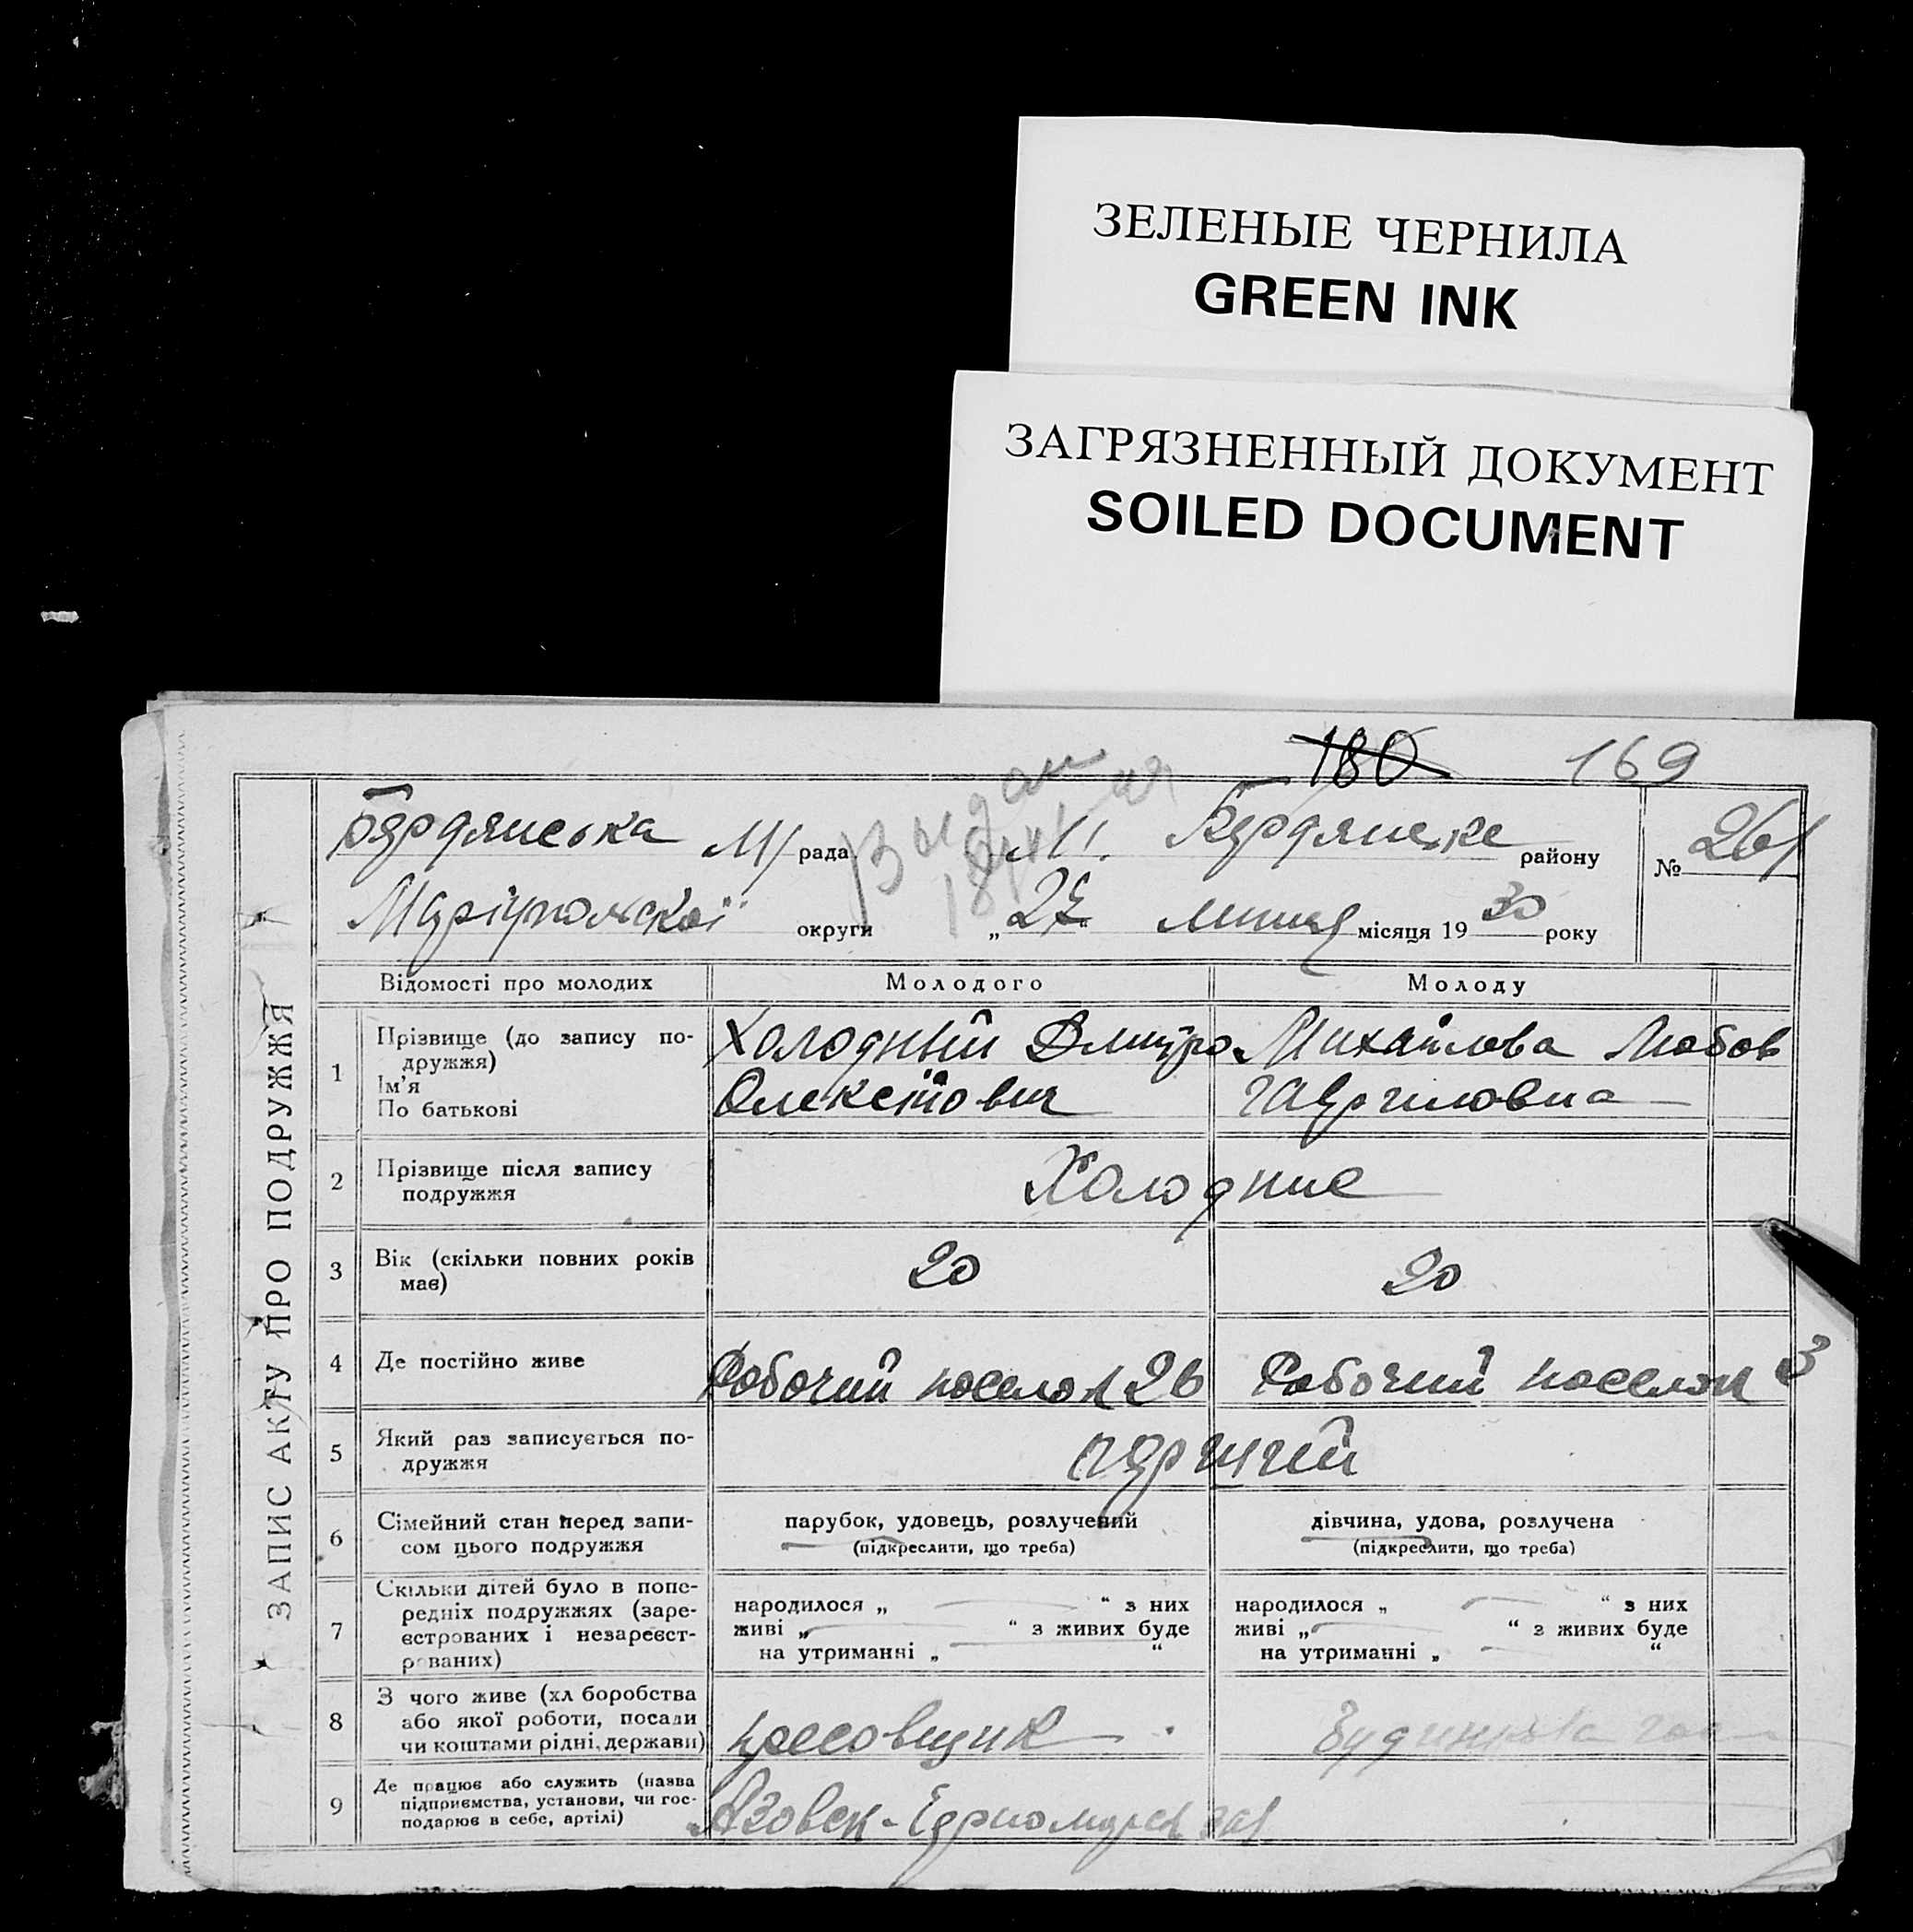 ЗЕЛЕНЫЕ ЧЕРНИЛА
GREEN INK
ЗАГРЯЗНЕННЫЙ ДОКУМЕНТ
SOILED DOCUMENT
180 169
Бердянська М/ рада М. Бердянське району № 261
Маріупольскої округи „27" липня місяця 1930 року
ЗАПИС АКТУ ПРО ПОДРУЖЖЯ
Відомості про молодих Молодого Молоду
1 Прізвище (до запису по-
дружжя)
Ім'я
По батькові
Холодний Дмитро Михайлова Любов
Олексійович Гавриловна
2 Прізвище після запису
подружжя
Холодние
3 Вік (скільки повних років
має)
20 20
4 Де постійно живе Робочий поселок 26 Робочий поселок 3
5 Який раз записується по-
дружжя
перший
6 Сімейний стан перед запи-
сом цього подружжя
парубок, удовець, розлучений дівчина, удова, розлучена
(підкреслити, що треба) (підкреслити, що треба)
7 Скільки дітей було в попе-
редніх подружжях (заре-
єстрованих і незареєст-
рованих)
народилося „ “ з них народилося „ “ з них
живі „ “ з живих буде живі „ “ з живих буде
на утриманні „ “ на утриманні „ “
8 З чого живе (хліборобства
або якої роботи, посади
чи коштами рідні, держави)
прессовщик
9 Де працює або служить (назва
підприємства, установи, чи гос-
подарює в себе, артілі)
Азовск-Черноморск зав